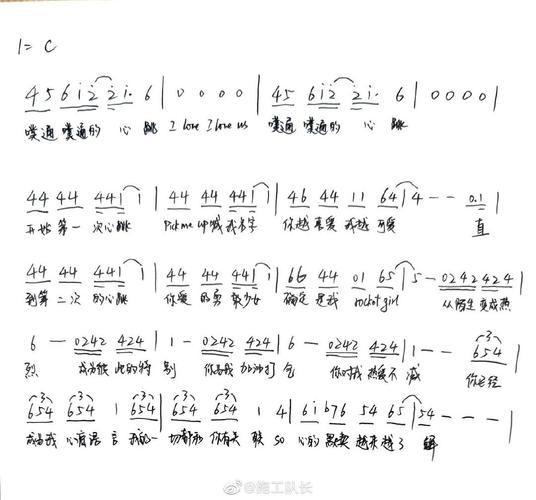 1= C
4 5 6 i 2 2 i. 6 | 0 0 0 0 | 4 5 6 i 2 2 i. 6 | 0 0 0 0 |
噗通 噗通的 心 跳 I love I love us 噗通 噗通的 心 跳
44 44 441 1 | 44 44 441 1 | 46 44 11 64 | 4 - - 0.1 |
开始 第一 次心跳 Pick me up 喊我名字 你越 真爱 我越 可爱 直
44 44 441 1 | 44 44 441 1 | 66 44 01 65 | 5 - 0242 424 |
到第 二次 的心跳 你爱 的勇 敢少女 确定 是我 rocket girl 从陌生 变成热
6 - 0242 424 | 1 - 0242 424 | 6 - 0242 424 | 1 - - 654 |
烈 成为彼 此的特 别 你为我 加油打 气 你对我 热爱不 减 你已经
654 654 1 654 | 654 654 1 4 | 6 i b7 6 54 65 | 54 - - - |
成为我 心有语 言 我的一 切都和 你有关 联 so 心的 默契 越来越 了 解
@施工队长